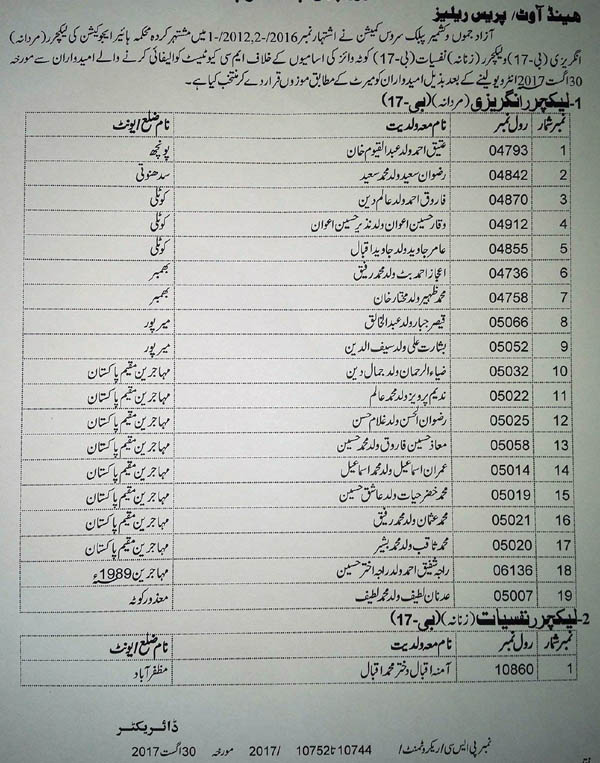 ہینڈ آؤٹ/ پریس ریلیز
آزاد جموں و کشمیر پبلک سروس کمیشن نے اشتہار نمبر 2016/-2,2012/-1 میں مشتہر کردہ محکمہ ہائیر ایجوکیشن کی لیکچرر (مردانہ)
انگریزی (بی-17) و لیکچرر (زنانہ) نفسیات (بی-17) کوٹہ وائز کی اسامیوں کے خلاف ایم سی کیو ٹیسٹ کوالیفائی کرنے والے امیدواران سے مورخہ
30 اگست 2017 انٹرویو لینے کے بعد بذیل امیدواران کو میرٹ کے مطابق موزوں قرار دے کر منتخب کیا ہے۔
1- لیکچرر انگریزی (مردانہ) (بی-17)
نمبر شمار رول نمبر نام معہ ولدیت نام ضلع/یونٹ
1 04793 عتیق احمد ولد عبدالقیوم خان پونچھ
2 04842 رضوان سعید ولد محمد سعید سدھنوتی
3 04870 فاروق احمد ولد عالم دین کوٹلی
4 04912 وقار حسین اعوان ولد نذیر حسین اعوان کوٹلی
5 04855 عامر جاوید ولد جاوید اقبال کوٹلی
6 04736 اعجاز احمد بٹ ولد محمد رفیق بھمبر
7 04758 محمد ظہیر ولد مختار خان بھمبر
8 05066 قیصر جبار ولد عبدالخالق میرپور
9 05052 بشارت علی ولد سیف الدین میرپور
10 05032 ضیاءالرحمان ولد جمال دین مہاجرین مقیم پاکستان
11 05022 ندیم پرویز ولد محمد عالم مہاجرین مقیم پاکستان
12 05025 رضوان الحسن ولد غلام حسن مہاجرین مقیم پاکستان
13 05058 معاذ حسین فاروق ولد محمد حسین مہاجرین مقیم پاکستان
14 05014 عمران اسماعیل ولد محمد اسماعیل مہاجرین مقیم پاکستان
15 05019 محمد خضر حیات ولد عاشق حسین مہاجرین مقیم پاکستان
16 05021 محمد عثمان ولد محمد رفیق مہاجرین مقیم پاکستان
17 05020 محمد ثاقب ولد محمد بشیر مہاجرین مقیم پاکستان
18 06136 راجہ شفیق احمد ولد راجہ اختر حسین مہاجرین 1989ء
19 05007 عدنان لطیف ولد محمد لطیف معذور کوٹہ
2- لیکچرر نفسیات (زنانہ) (بی-17)
نمبر شمار رول نمبر نام معہ ولدیت نام ضلع/یونٹ
1 10860 آمنہ اقبال دختر محمد اقبال مظفرآباد
ڈائریکٹر
نمبر پی ایس سی/ریکروٹمنٹ/ 10744 تا 10752 /2017 مورخہ 30 اگست 2017